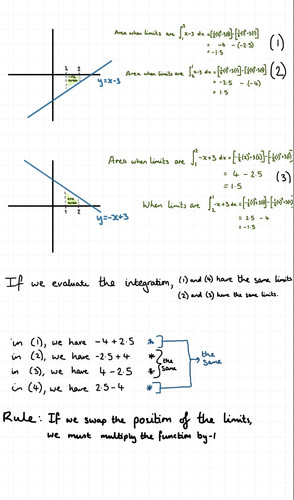 Area when limits are ∫₁² x-3 dx = [½(2)²-3(2)]-[½(1)²-3(1)] (1)
= -4 - (-2.5)
= -1.5
Area when limits are ∫₂¹ x-3 dx = [½(1)²-3(1)]-[½(2)²-3(2)] (2)
= -2.5 - (-4)
= 1.5
1 2
y=x-3
Area when limits are ∫₁² -x+3 dx = [-½(2)²+3(2)]-[-½(1)²+3(1)]
= 4 - 2.5 (3)
= 1.5
When limits are ∫₂¹ -x+3 dx = [-½(1)²+3(1)]-[-½(2)²+3(2)]
= 2.5 - 4
= -1.5
1 2
y=-x+3
If we evaluate the integration, (1) and (4) have the same limits
(2) and (3) have the same limits.
in (1), we have -4+2.5 *
in (2), we have -2.5+4 *
in (3), we have 4-2.5 *
in (4), we have 2.5-4 *
the same
the same
Rule: If we swap the position of the limits,
we must multiply the function by -1